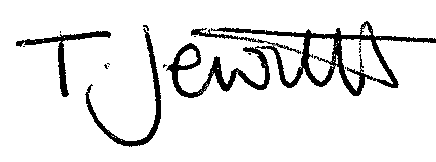 T. Jewitt